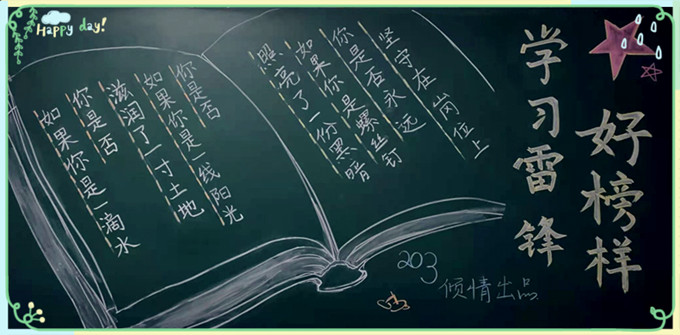 Happy day!
学习雷锋
好榜样
如果你是一滴水
你是否
滋润了一寸土地
如果你是一线阳光
你是否
照亮了一份黑暗
如果你是螺丝钉
你是否永远
坚守在岗位上
203
倾情出品